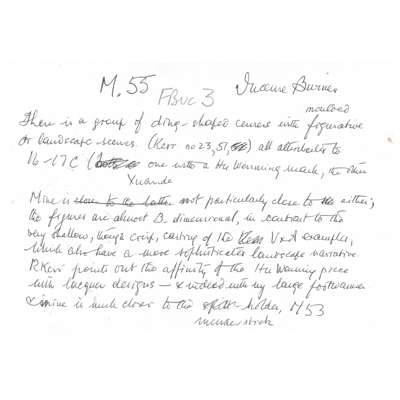 M.55 Incense Burner
FBUC 3 moulded
There is a group of ding-shaped censers with figurative
or landscape scenes. (Kerr no 23, 51, ) all attributed to
16-17C ( one with a Hu Wenming mark, the other
Xuande
Mine is close to the latter not particularly close to either;
the figures are almost 3. dimensional, in contrast to the
very shallow, though crisp, casting of the V&A examples,
which also have a more sophisticated landscape narrative
R.Kerr points out the affinity of the Hu Wenming piece
with lacquer designs — & indeed with my large footwarmer
& mine is much closer to the holder, M53
incense stick